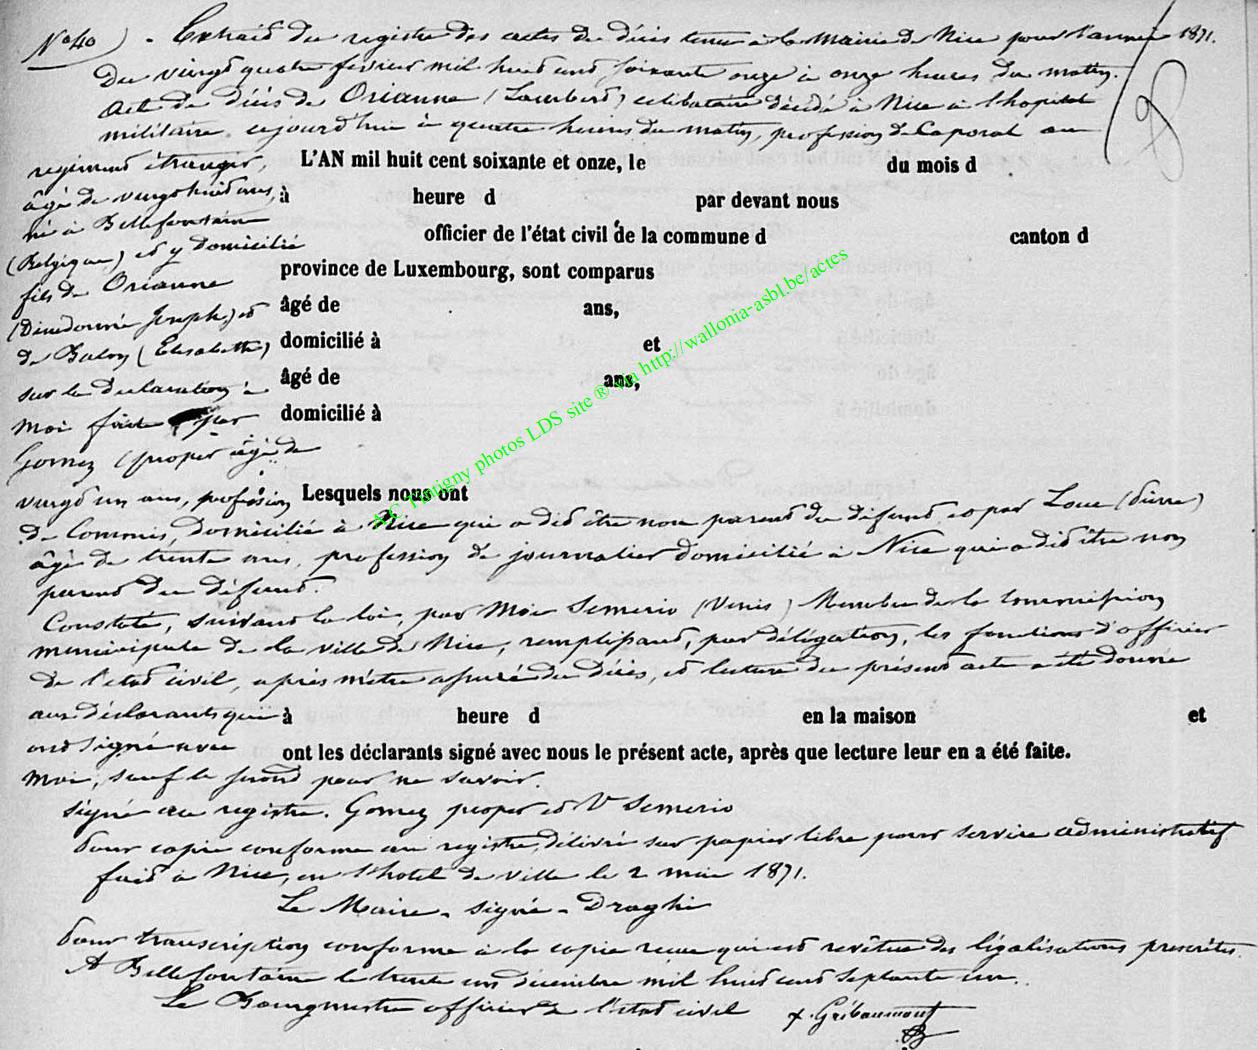 N° 40 - Extrait du registre des actes de décès tenu à la Mairie de Nice pour l'année 1871.
Du vingt quatre février mil huit cent soixante onze à onze heures du matin.
Acte de décès de Orianne (Lambert) célibataire décédé à Nice à l'hopital
militaire aujourd'hui à quatre heures du matin, profession de Caporal au
régiment étranger, L'AN mil huit cent soixante et onze, le du mois d
âgé de vingt huit ans, à heure d par devant nous
né à Bellefontaine officier de l'état civil de la commune d canton d
(Belgique) et y domicilié
province de Luxembourg, sont comparus
fils de Orianne âgé de ans,
(Dieudonné Joseph) et
de (Elisabeth) domicilié à et
sur la déclaration à âgé de ans,
moi faite par domicilié à
Gomez (prosper) âgé de
vingt un ans, profession Lesquels nous ont
de Commis, domicilié à Nice qui a dit être non parent du défunt et par (Pierre)
âgé de trente ans, profession de journalier domicilié à Nice qui a dit être non
parent du défunt.
Constaté, suivant la loi, par Moi Semerio (Venis) Membre de la Commission
municipale de la ville de Nice, remplissant, par délégation, les fonctions d'officier
de l'état civil, après m'être assuré du décès, et lecture du présent acte a été donnée
aux déclarants qui à heure d en la maison et
ont signé avec ont les déclarants signé avec nous le présent acte, après que lecture leur en a été faite.
moi, sauf le second pour ne savoir.
signé au registre. Gomez prosper et V Semerio
Pour copie conforme au registre, délivré sur papier libre pour service administratif
fait à Nice, en l'hotel de ville le 2 mai 1871.
Le Maire - signé - Draghi
Pour transcription conforme à la copie reçue qui est revêtue des légalisations prescrites.
A Bellefontaine le trente un décembre mil huit cent septante un.
Le Bourgmestre officier de l'état civil
Gribaumont
AC Tintigny photos LDS site ® via http://wallonia-asbl.be/actes